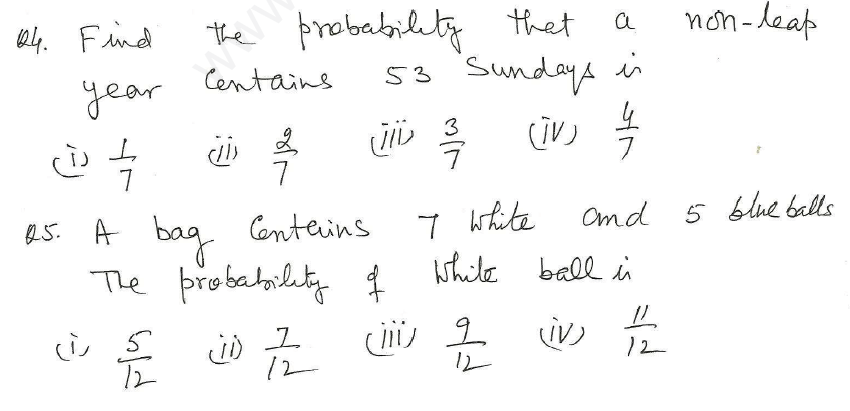 Q4. Find the probability that a non-leap
year Contains 53 Sundays is
(i) 1/7 (ii) 2/7 (iii) 3/7 (iv) 4/7
Q5. A bag Contains 7 White and 5 blue balls
The probability of White ball is
(i) 5/12 (ii) 7/12 (iii) 9/12 (iv) 11/12